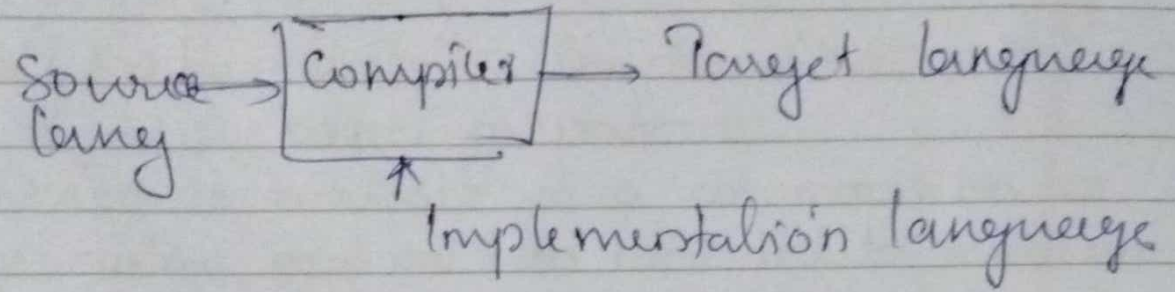 Source Compiler Target language
lang
Implementation language